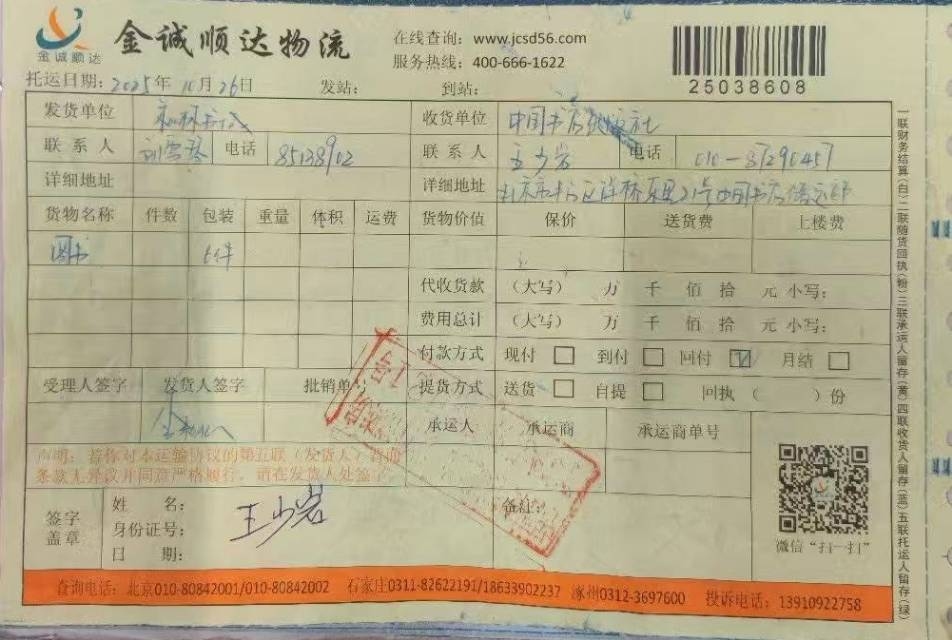 金诚顺达
金诚顺达物流
在线查询：www.jcsd56.com
服务热线：400-666-1622
25038608
托运日期：2025年 10月26日 发站： 到站：
发货单位 收货单位 中国书店出版社
联系人 电话 85138902 联系人 王少岩 电话 010-87290457
详细地址 详细地址
货物名称 件数 包装 重量 体积 运费 货物价值 保价 送货费 上楼费
图书 件
代收货款 （大写） 万 千 佰 拾 元 小写：
费用总计 （大写） 万 千 佰 拾 元 小写：
付款方式 现付 到付 回付 月结
受理人签字 发货人签字 批销单号 提货方式 送货 自提 回执（ ）份
承运人 承运商 承运商单号
声明：若你对本运输协议的第五联（发货人）背面
条款无异议并同意严格履行，请在发货人处签字
签字
盖章
姓 名：
身份证号：
日 期：
王少岩
备注：
微信“扫一扫”
查询电话：北京010-80842001/010-80842002 石家庄0311-82622191/18633902237 涿州0312-3697600 投诉电话：13910922758
一联财务结算（白）二联随货回执（粉）三联承运人留存（黄）四联收货人留存（蓝）五联托运人留存（绿）